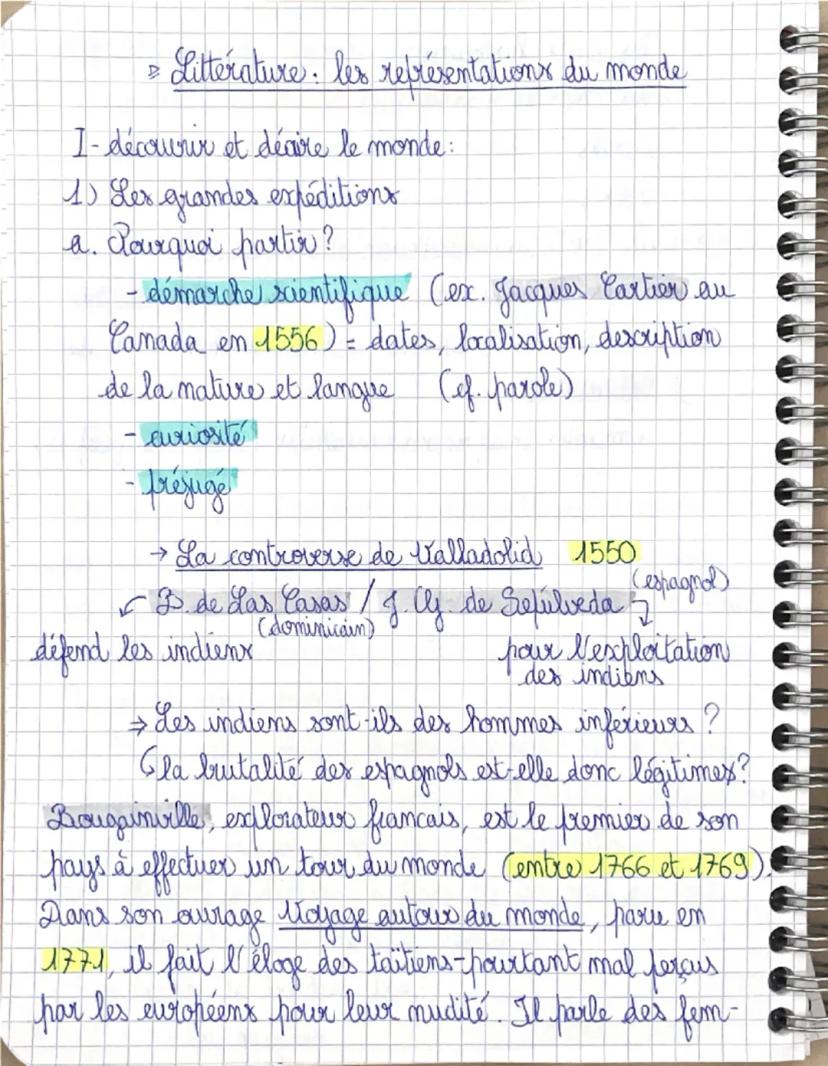 ▷ Littérature : les représentations du monde
I - découvrir et décrire le monde :
1) Les grandes expéditions
a. Pourquoi partir ?
- démarche scientifique (ex. Jacques Cartier au
Canada en 1556) = dates, localisation, description
de la nature et langue (cf. parole)
- curiosité
- préjugé
→ La controverse de Valladolid 1550
(espagnol)
↙ B. de Las Casas / J. G. de Sepúlveda ↴
(dominicain)
défend les indiens pour l'exploitation
des indiens
⇒ Les indiens sont-ils des hommes inférieurs ?
↳ la brutalité des espagnols est-elle donc légitimes?
Bougainville, explorateur francais, est le premier de son
pays à effectuer un tour du monde (entre 1766 et 1769).
Dans son ouvrage Voyage autour du monde, paru en
1771, il fait l'éloge des taïtiens - pourtant mal perçus
par les européens pour leur nudité. Il parle des fem-